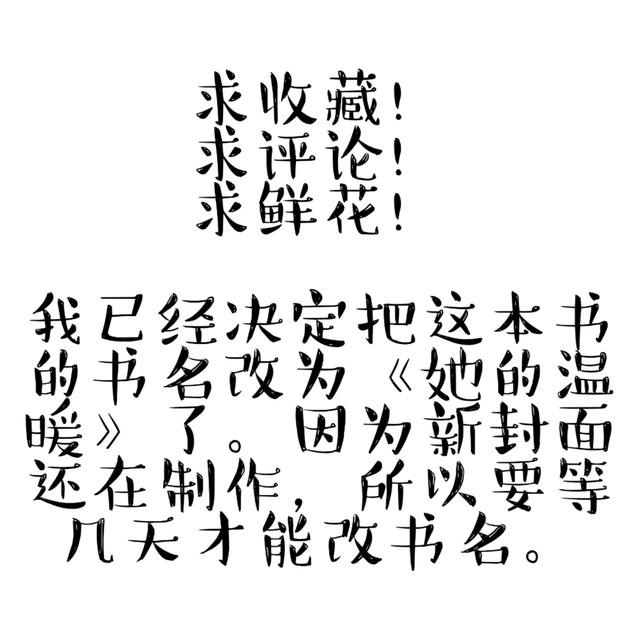 求收藏!
求评论!
求鲜花!
我已经决定把这本书
的书名改为《她的温
暖》了。因为新封面
还在制作，所以要等
几天才能改书名。